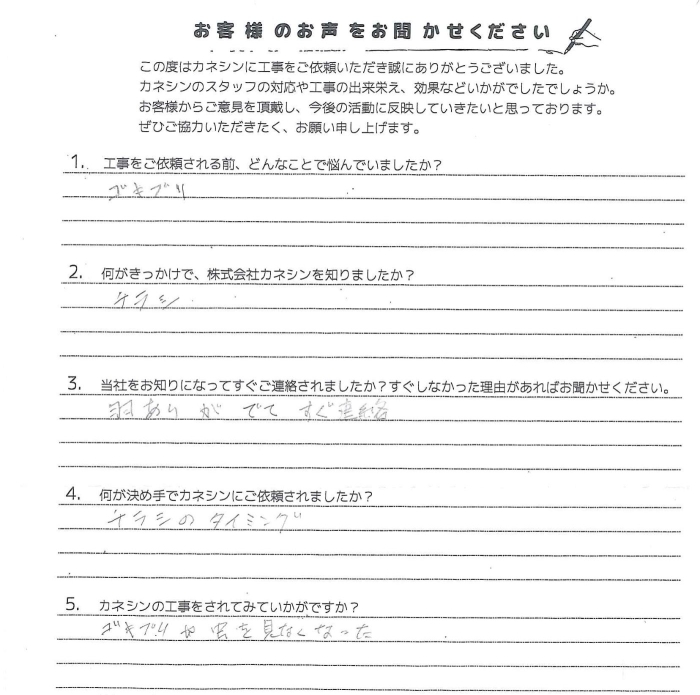 お客様のお声をお聞かせください
この度はカネシンに工事をご依頼いただき誠にありがとうございました。
カネシンのスタッフの対応や工事の出来栄え、効果などいかがでしたでしょうか。
お客様からご意見を頂戴し、今後の活動に反映していきたいと思っております。
ぜひご協力いただきたく、お願い申し上げます。
1. 工事をご依頼される前、どんなことで悩んでいましたか？
ゴキブリ
2. 何がきっかけで、株式会社カネシンを知りましたか？
チラシ
3. 当社をお知りになってすぐご連絡されましたか？すぐしなかった理由があればお聞かせください。
羽ありが でて すぐ連絡
4. 何が決め手でカネシンにご依頼されましたか？
チラシの タイミング
5. カネシンの工事をされてみていかがですか？
ゴキブリや 虫を見なくなった